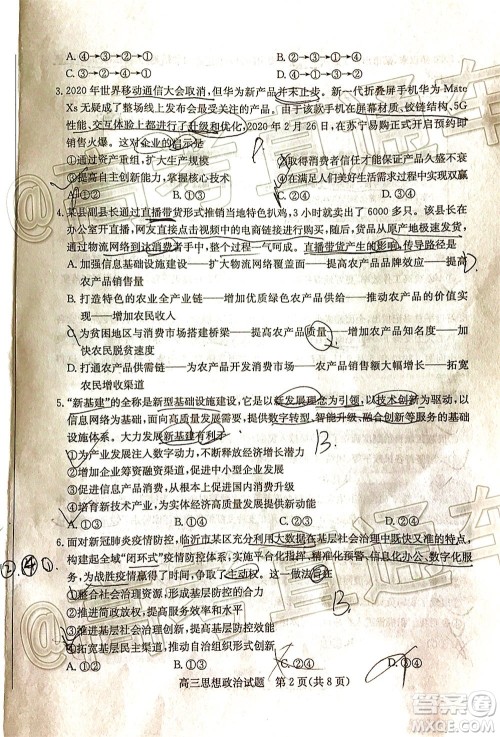 A. ④→③→②→① B. ④→②→③→①
C. ③→④→②→①
3. 2020 年世界移动通信大会取消，但华为新产品并未止步。新一代折叠屏手机华为 Mate
Xs 无疑成了整场线上发布会最吸睛的产品。由于该款手机在屏幕材质、铰链结构、5G
性能、交互体验上都进行了升级和优化，2020 年 2 月 26 日，在苏宁易购正式开启预约即
销售火爆。这对企业的启示是
①通过资产重组，扩大生产规模 ②提高消费者信任才能保证产品优势
③提高自主创新能力，掌握核心技术 ④在满足人民美好生活需求中实现双赢
A. ①③ B. ①② C. ②④ D. ③④
4. 某县副县长通过直播带货形式推销当地特色扒鸡，3 小时就卖出了 6000 多只。该县长在
办公室开启直播，网友直接点击视频下方的电商链接进行购买，货品从原产地极速发货，
通过物流网络到达消费者手中，整个过程一气呵成。直播带货产生的影响，传导路径是
A. 加强信息基础设施建设——扩大物流网络覆盖面——提高农产品品牌效应——提高
农产品销售量
B. 打造特色的农业全产业链——增加优质绿色农产品供给——推动农产品价格提高——
增加农民收入
C. 为贫困地区与消费市场搭建桥梁——提高农产品质量——增加农产品知名度——加
快农民脱贫速度
D. 打通农产品供需信息对接——缩短交易时间——增加农产品销售额——拓宽
农民增收渠道
5. “新基建”的全称是新型基础设施建设，它是以新发展理念为引领，以技术创新为驱动，以
信息网络为基础，面向高质量发展需要，提供数字转型、智能升级、融合创新等服务的基础
设施体系。大力发展新基建有利于
①为产业发展注入数字动力，不断释放经济增长潜力
②增加企业筹资融资渠道，促进中小型企业发展
③促进信息产品消费，从根本上创新消费内容
④培育新技术产业，为实现经济高质量发展赋能
A. ①③ B. ①④ C. ②③ D. ②④
6. 面对新冠肺炎疫情防控，临沂市某区充分利用大数据在基层社会治理中既快又准的特点，
构建起全域“闭环式”疫情防控体系，实施平台化指挥、精准化预警、信息化办公、数字化服
务，为战胜疫情赢得了时间，掌握了主动权。这一做法旨在
①整合社会治理资源，提高治理效能
②推进简政放权，提高政府公信力
③推进基层社会治理创新，提高基层防控效能
④拓宽基层民主渠道，推动自治组织形式创新
A. ①② B. ①③ C. ②④ D. ③④
高三思想政治试题 第 2 页(共 8 页)